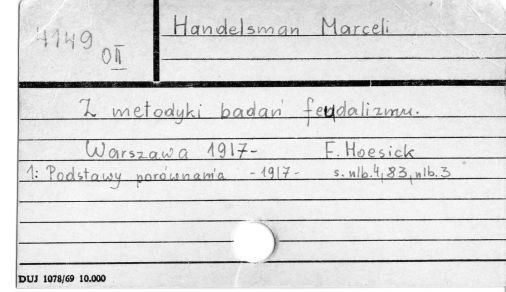 4149
OII
Handelsman Marceli
Z metodyki badań feudalizmu.
Warszawa 1917- F. Hoesick
1: Podstawy porównania - 1917 - s. nlb. 4, 83, nlb. 3
DUJ 1078/69 10.000